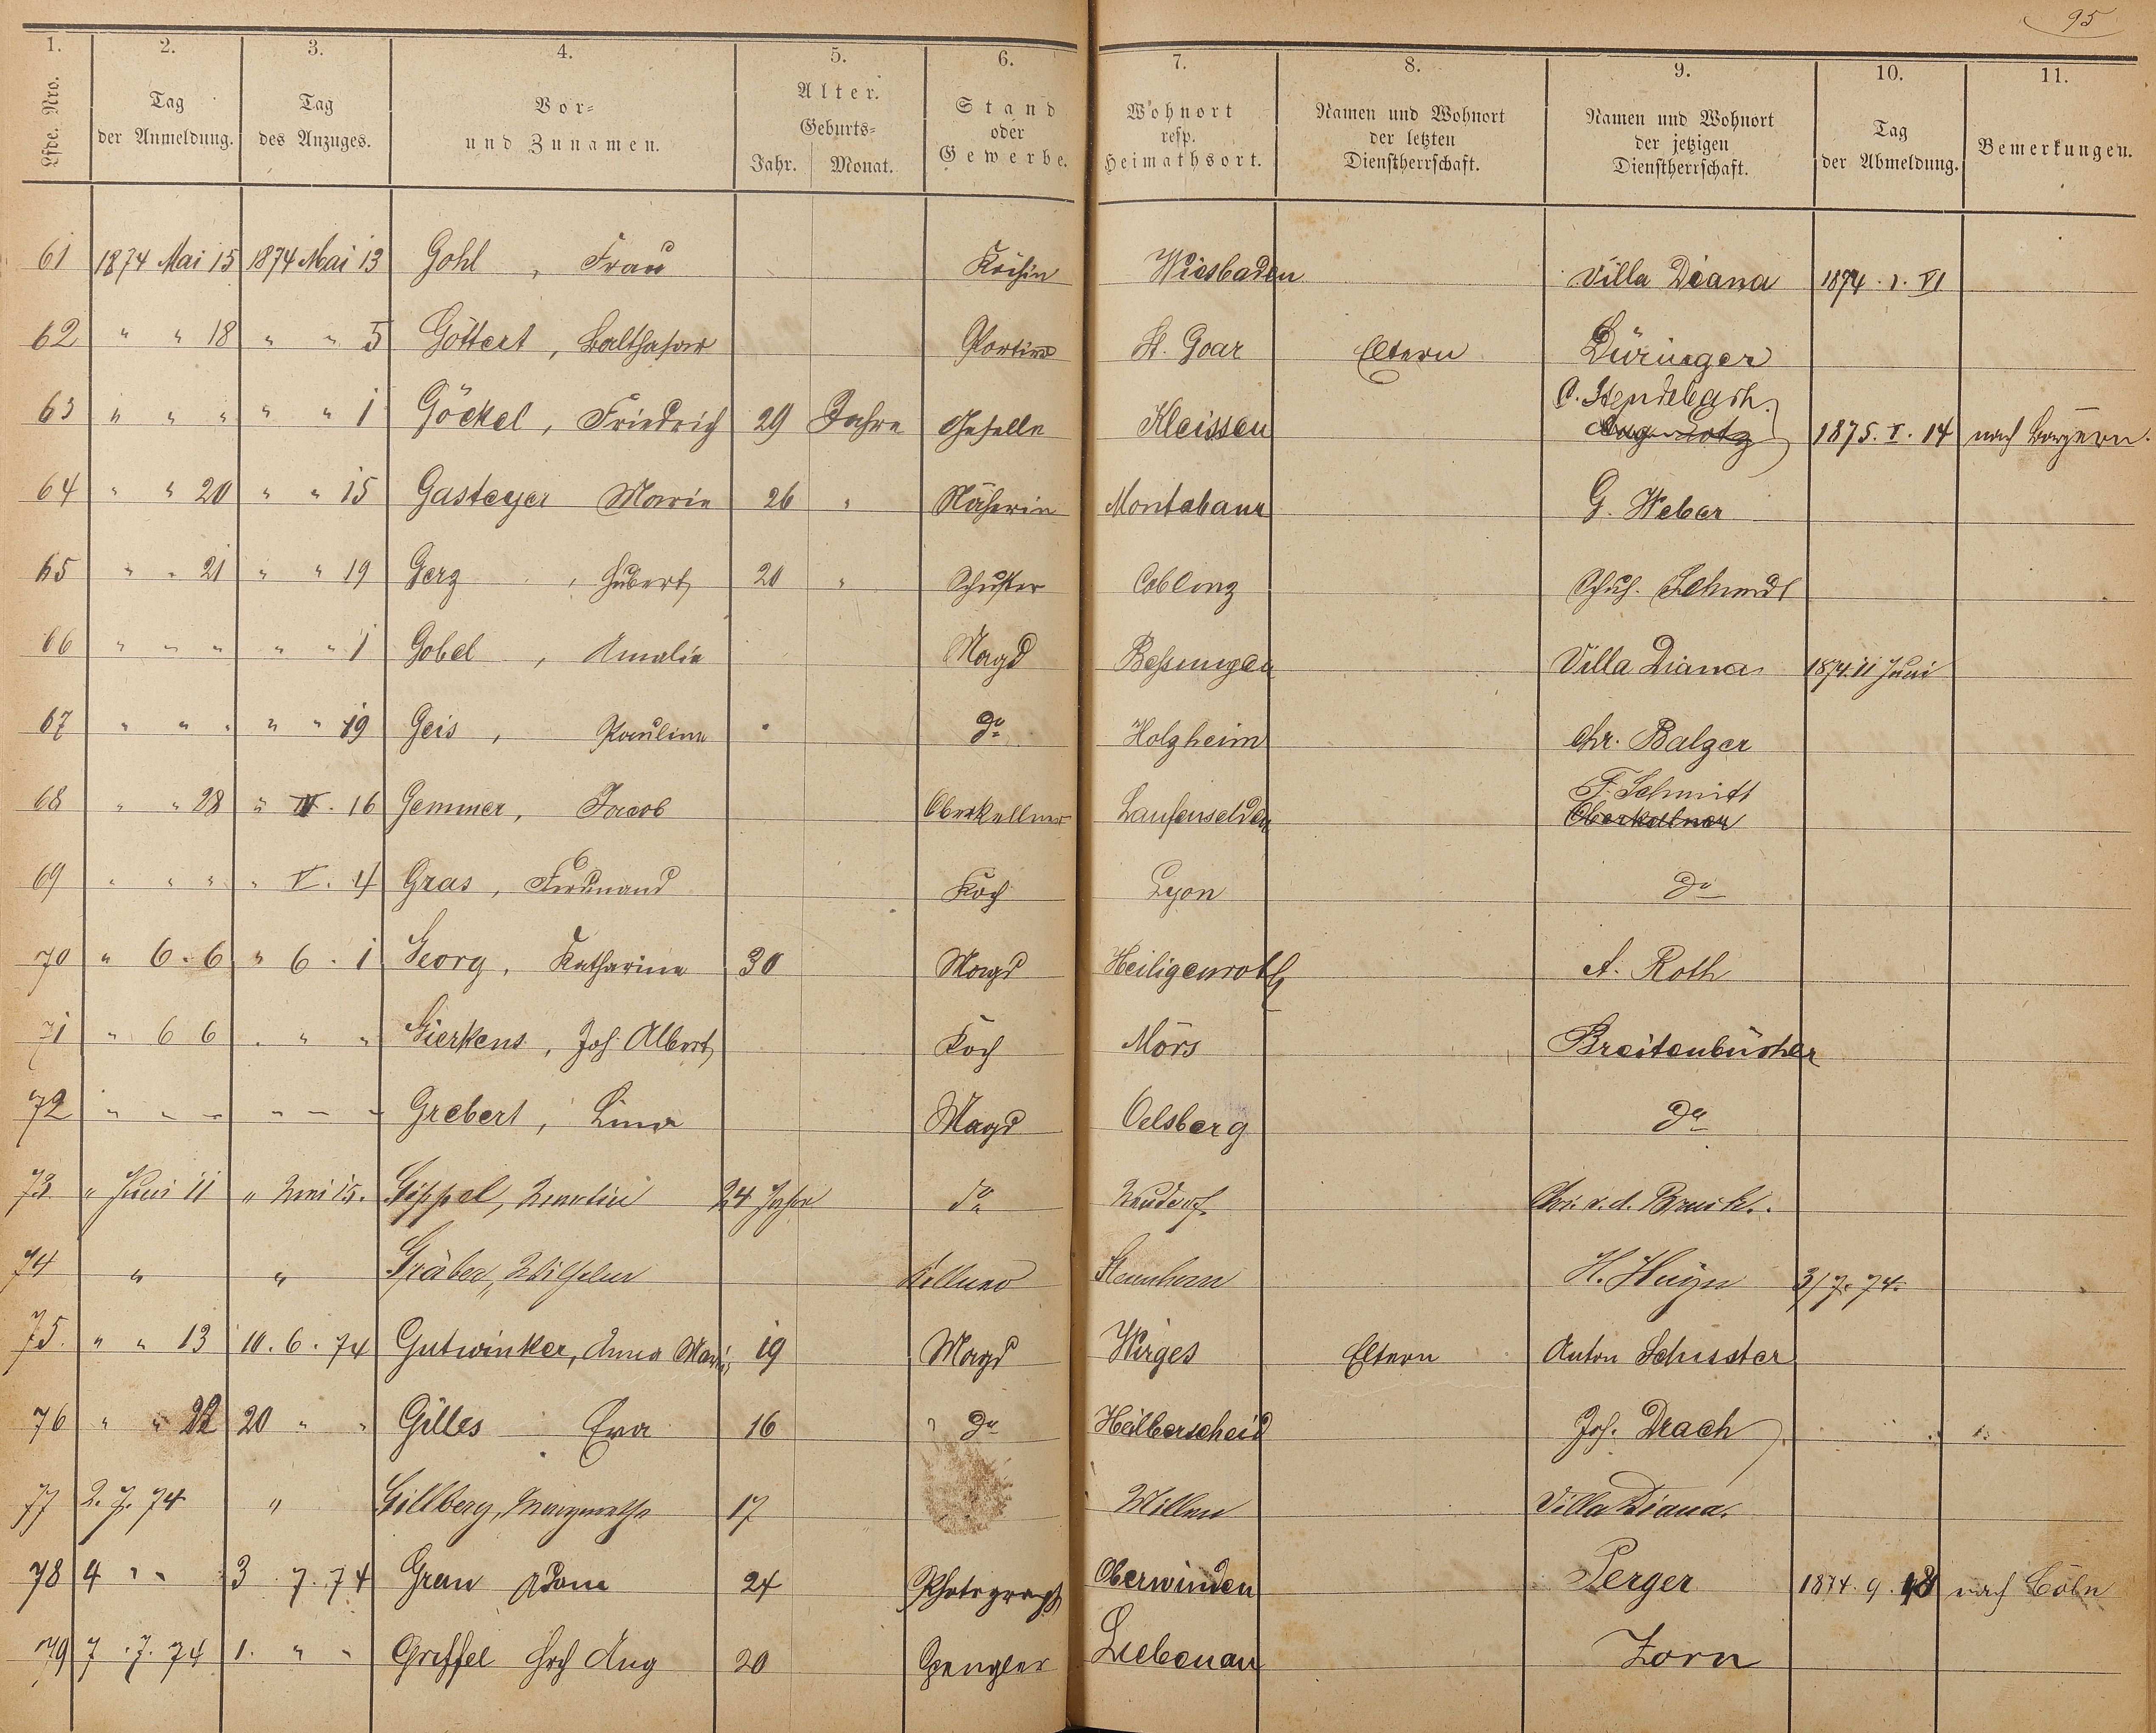 95
1. 2. 3. 4. 5. 6. 7. 8. 9. 10. 11.
Lfde. Nro. Tag der Anmeldung. Tag des Anzuges. Vor- und Zunamen. Alter. Geburts- Jahr. Monat. Stand oder Gewerbe. Wohnort resp. Heimathsort. Namen und Wohnort der letzten Dienstherrschaft. Namen und Wohnort der jetzigen Dienstherrschaft. Tag der Abmeldung. Bemerkungen.
61 1874 Mai 15 1874 Mai 13 Gohl, Frau Köchin Wiesbaden Villa Diana 1874. 1. VI
62 " " 18 " " 5 Göttert, Balthasar Portier St. Goar Eltern Düringer
63 " " " " " 1 Göckel, Friedrich 29 Jahre Geselle Kleissen 1875. I. 14 nach
64 " " 20 " " 15 Gasteyer Marie 26 " Näherin Montabaur G. Weber
65 " " 21 " " 19 Gerz, Hubert 20 " Schuster Coblenz Schuh. Schmidt
66 " " " " " 1 Gobel, Amalie Magd Bessungen Villa Diana 1874. 11 Juni
67 " " " " " 19 Geis, Pauline do Holzheim Chr. Balzer
68 " " 28 " IV. 16 Gemmer, Jacob Oberkellner Laufenselden F. Schmitt Oberkellner
69 " " " " V. 4 Gras, Ferdinand Koch Lyon do
70 " 6. 6 " 6. 1 Georg, Katharina 30 Magd Heiligenroth A. Roth
71 " 6 6 " " " Gierkens, Joh. Albert Koch Mörs Breitenbücher
72 " " " " " " Grebert, Lina Magd Oelsberg do
73 " Juni 11 " Mai 15. Gippel, Martin 24 Jahre do Neudorf Chr. v. d. Bruck.
74 " " Gräber, Wilhelm Kellner H. Huyn 3/7. 74.
75. " " 13 10. 6. 74 Gutwinker, Anna Maria 19 Magd Wirges Eltern Anton Schuster
76 " " 22 20 " " Gilles Eva 16 do Heilberscheid Joh. Drach
77 2. 7. 74 " Gillberg, Margaretha 17 Villa Diana.
78 4 " " 3 7. 74 Grau Adam 24 Photograph Oberwinden Perger 1874. 9. 18 nach Cöln
79 7. 7. 74 1. " " Griffel Aug 20 Spengler Liebenau Zorn